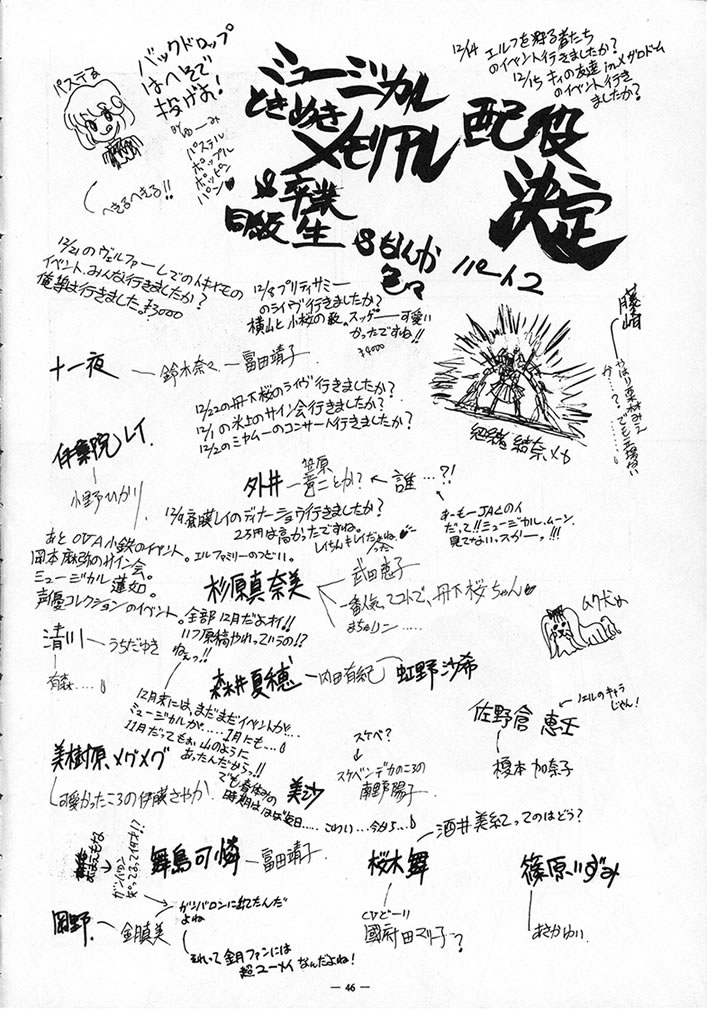 パステる
バックドロップ
はへそで
投げお!
パステル
ポップル
ポッピン
パン
へきるへきる!!
ミュージカル
ときめき
メモリアル
配役
決定
&卒業
同級生
&なんか
色々
パート2
12/14 エルフを狩る者たち
のイベント行きましたか?
12/15 キィの友達inメダロドーム
のイベント行き
ましたか?
12/21のヴェルファーレでのイベント
イベント、みんな行きましたか?
俺達は行きました。¥3000
12/8プリティサミー
のライヴ行きましたか?
横山と小桜の歌。スッゲー可愛い
かったですね!!
¥4000
藤崎
やはり栗林みえ
か…?でも、
十一夜
鈴木奈々―富田靖子
勉強 結奈メカ
12/22の丹下桜のライヴ行きましたか?
12/1の氷上のサイン会行きましたか?
12/2のミヤムーのコンサート行きましたか?
伊集院レイ
小野ひかり
外井
笠原
竜ことか?
←誰…?!
だって!!ミュージカル、ムーン、
見てない。スカーッ!!!
12/9斎藤レイのディナーショウ行きましたか?
2万円は高かったですね。
あとOVA小鉄のイベント。エルファミリーのつどい。
岡本麻弥のサイン会。
ミュージカル蓮如。
声優コレクションのイベント。
全部12月だよオイ!!
いつ原稿やれっていうの!?
ねえっ!!
杉原真奈美
武田恵子
一番人気、てコトで、丹下桜ちゃん
まちゅリン……
ムク犬め
清川―うちだゆき
有森….
森井夏穂―内田有紀
虹野沙希
12月末には、まだまだイベントが…
ミュージカルが……1月にも…
11月だってもお山のように
あったんだからっ!!
でも春休みの
時期はほぼ毎日……こわい…今から…
佐野倉 恵壬
ノエルのキャラ
じゃん!
榎本加奈子
美樹原、メグメグ
可愛かったころの伊藤さやか.
美沙
スケベ?
スケバンデカのころの
南野陽子
舞島可憐―富田靖子
桜木舞
酒井美紀ってのはどう?
CVどーり
國府田マリ子?
篠原いずみ
あさかゆい
岡野―金月真美
ガンバロンに出てたんだ
よね
それって金月ファンには
超ユーメイなんだよね!
― 46 ―